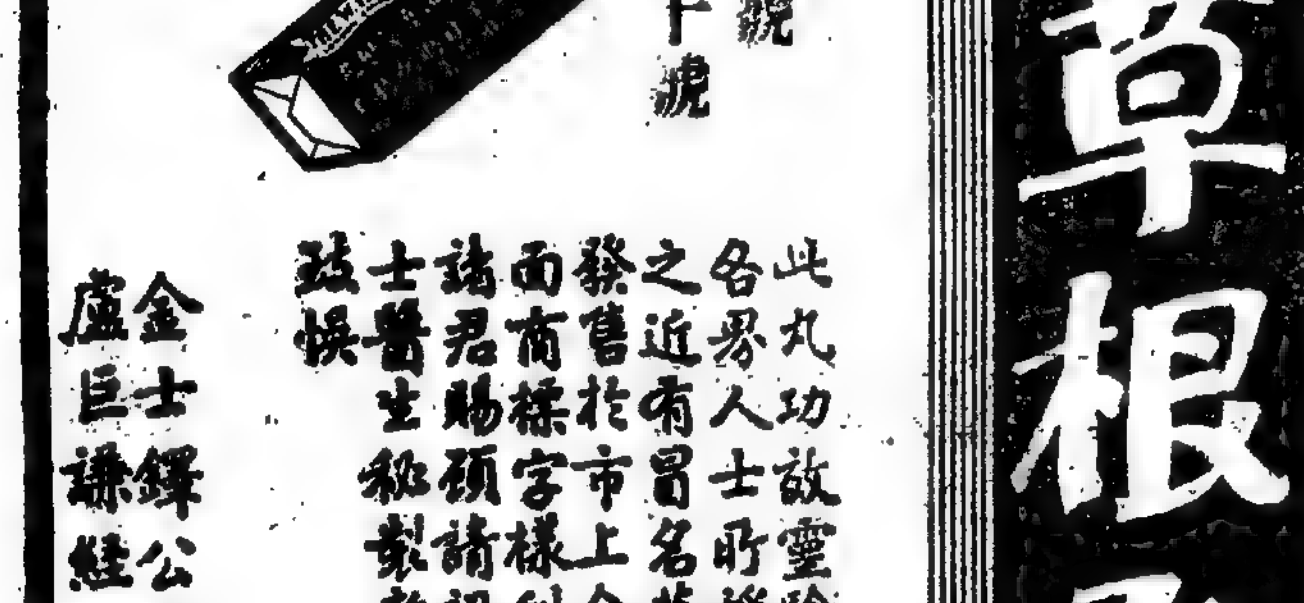 草根
號
十號
此丸功效靈
各界人士所
之近有冒名
發售於市上
面商標字樣
諸君賜顧請
士醫生秘製
致悞
金士鐸公
盧巨謙經